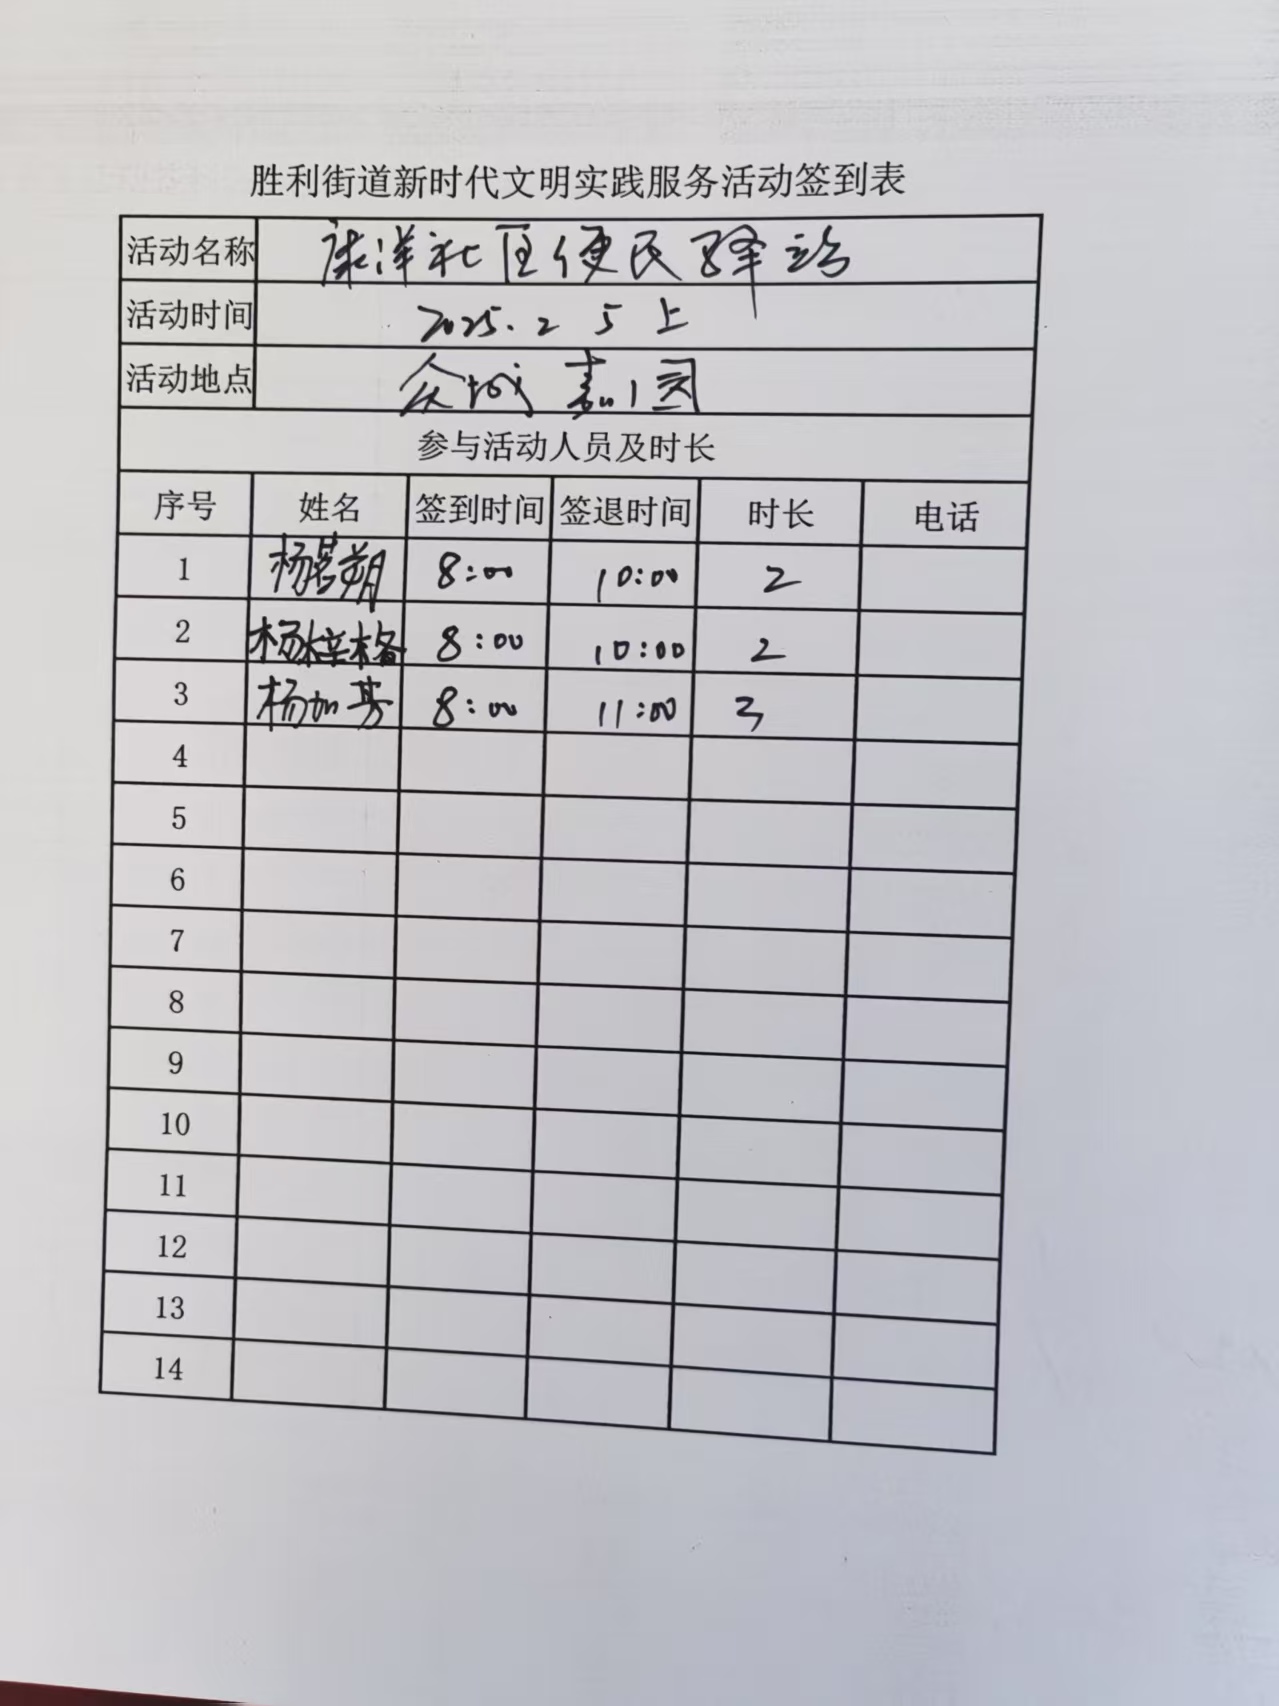 胜利街道新时代文明实践服务活动签到表
活动名称 康洋社区便民驿站
活动时间 2025.2 5 上
活动地点 众城嘉园
参与活动人员及时长
序号 姓名 签到时间 签退时间 时长 电话
1 杨茗朔 8:00 10:00 2
2 杨梓格 8:00 10:00 2
3 杨加芳 8:00 11:00 3
4
5
6
7
8
9
10
11
12
13
14